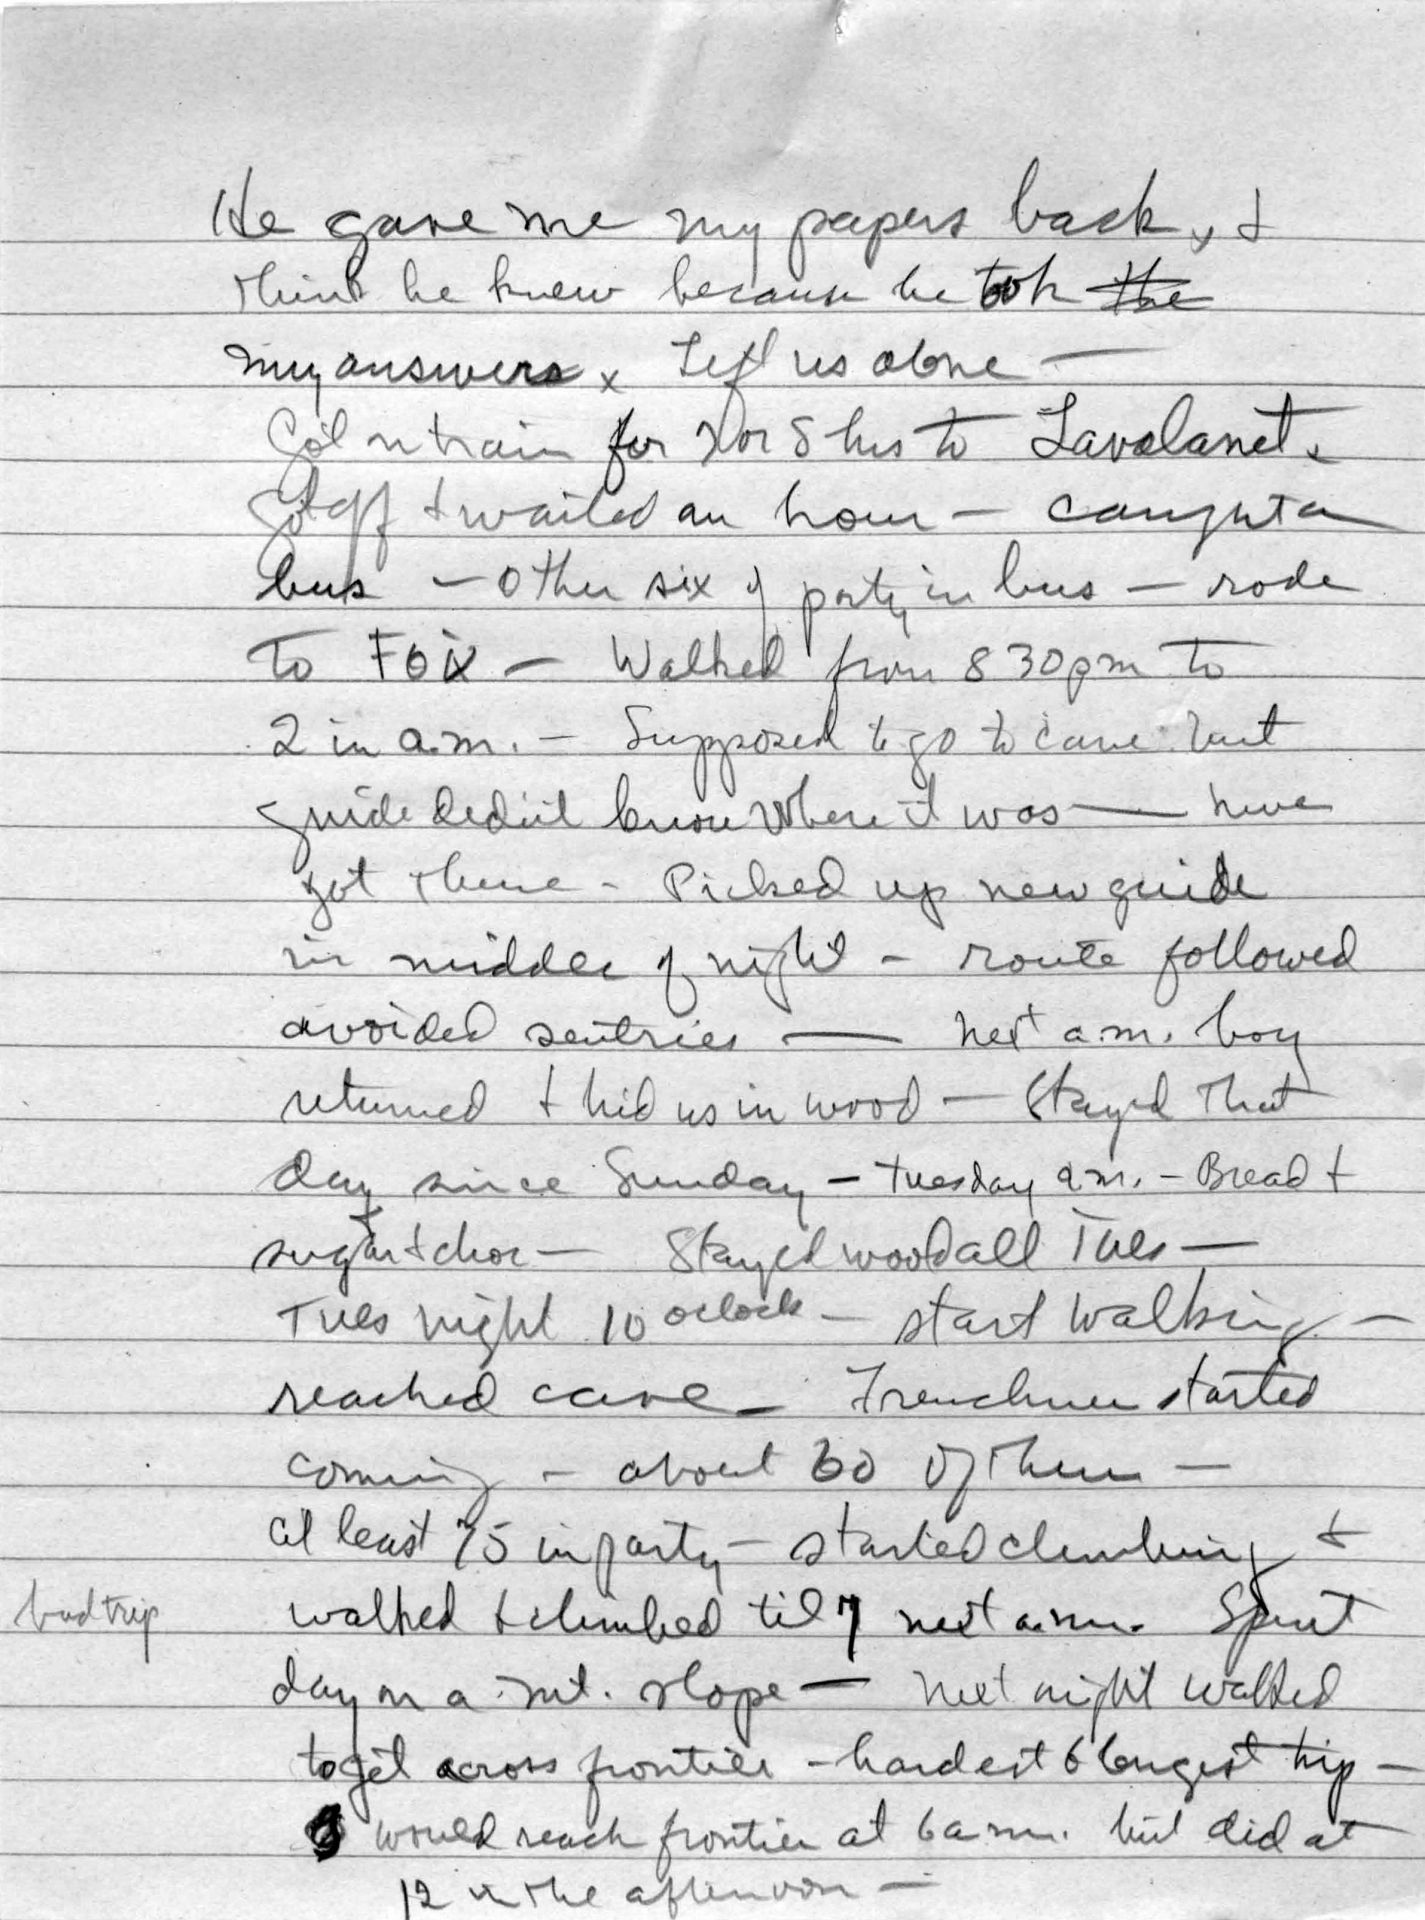 He gave me my papers back, &
think he knew because he took the
my answers x Left us alone —
Got on train for 7 or 8 hrs to Lavelanet x
Got off & waited an hour — caught a
bus — other six of party in bus — rode
to Foix — Walked from 8 30 pm to
2 in a.m. — Supposed to go to cave but
guide didn't know where it was — never
got there - Picked up new guide
in middle of night - route followed
avoided sentries — next a.m. boy
returned & hid us in wood — Stayed that
day since Sunday — Tuesday a.m. - Bread &
sugar & choc — Stayed wood all Tues —
Tues night 10 oclock — start walking —
reached cave — Frenchmen started
coming — about 60 of them —
at least 75 in party — started climbing &
bad trip
walked & climbed til 7 next a.m. Spent
day on a mt. slope — next night walked
to get across frontier - hardest & longest trip —
would reach frontier at 6 a.m. but did at
12 in the afternoon —